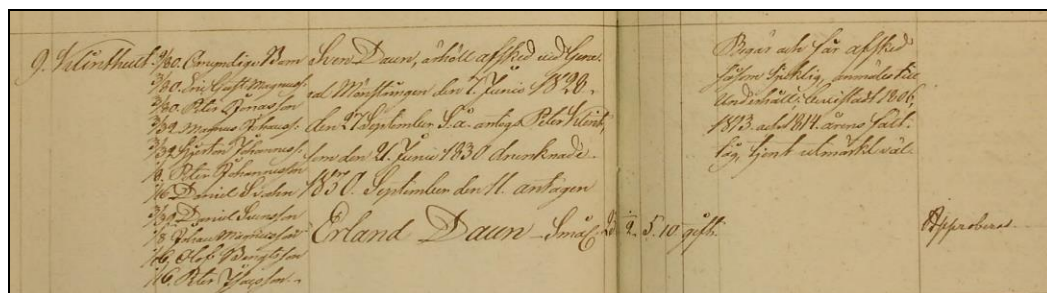 9. Klinthult
9/80. Omyndige Barn
3/80. Eric Gust. Magnuss.
2/80. Peter Jonasson
3/32. Magnus Johanss.
3/32. Johanness.
1/8. Peter Johannesson
1/16. Daniel Svahn
3/32. Daniel Svensson
1/8. Johan Magnusson
1/16. Olof Bengtsson
1/16. Peter
Sven Daun, erhöll afsked vid Gene-
ral Mönstringen den 7. Junii 1828.
den 27 September s.å. antogs Peter Klint,
som den 21. Junii 1830 drunknade.
1830. September den 11. antagen
Erland Daun Smål. 2. 5. 10 gift.
Begär och får afsked
såsom sjuklig, anmäles till
Underhåll, bevistadt 1806,
1813. och 1814. årens fält-
tåg, tjent utmärkt väl.
Approberas